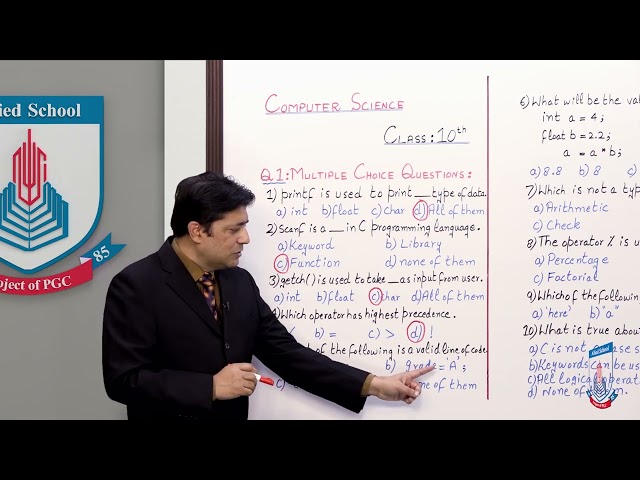 ied School
85
oject of PGC
COMPUTER SCIENCE
CLASS: 10th
Q.1: MULTIPLE CHOICE QUESTIONS:
1) printf is used to print __ type of data.
a) int b) float c) char d) All of them
2) scanf is a __ in C programming language.
a) Keyword b) Library
c) Function d) none of them
3) getch() is used to take __ as input from user.
a) int b) float c) char d) All of them
4) Which operator has highest precedence.
b) = c) > d) !
of the following is a valid line of code
b) grade = 'A';
c) none of them
6) What will be the val
int a = 4;
float b = 2.2;
a = a * b;
a) 8.8 b) 8 c)
7) Which is not a typ
a) Arithmetic
c) Check
8) The operator % is u
a) Percentage
c) Factorial
9) Which of the following
a) 'here' b) "a"
10) What is true abou
a) C is not case s
b) Keywords can be us
c) All logical operat
d) None of them.